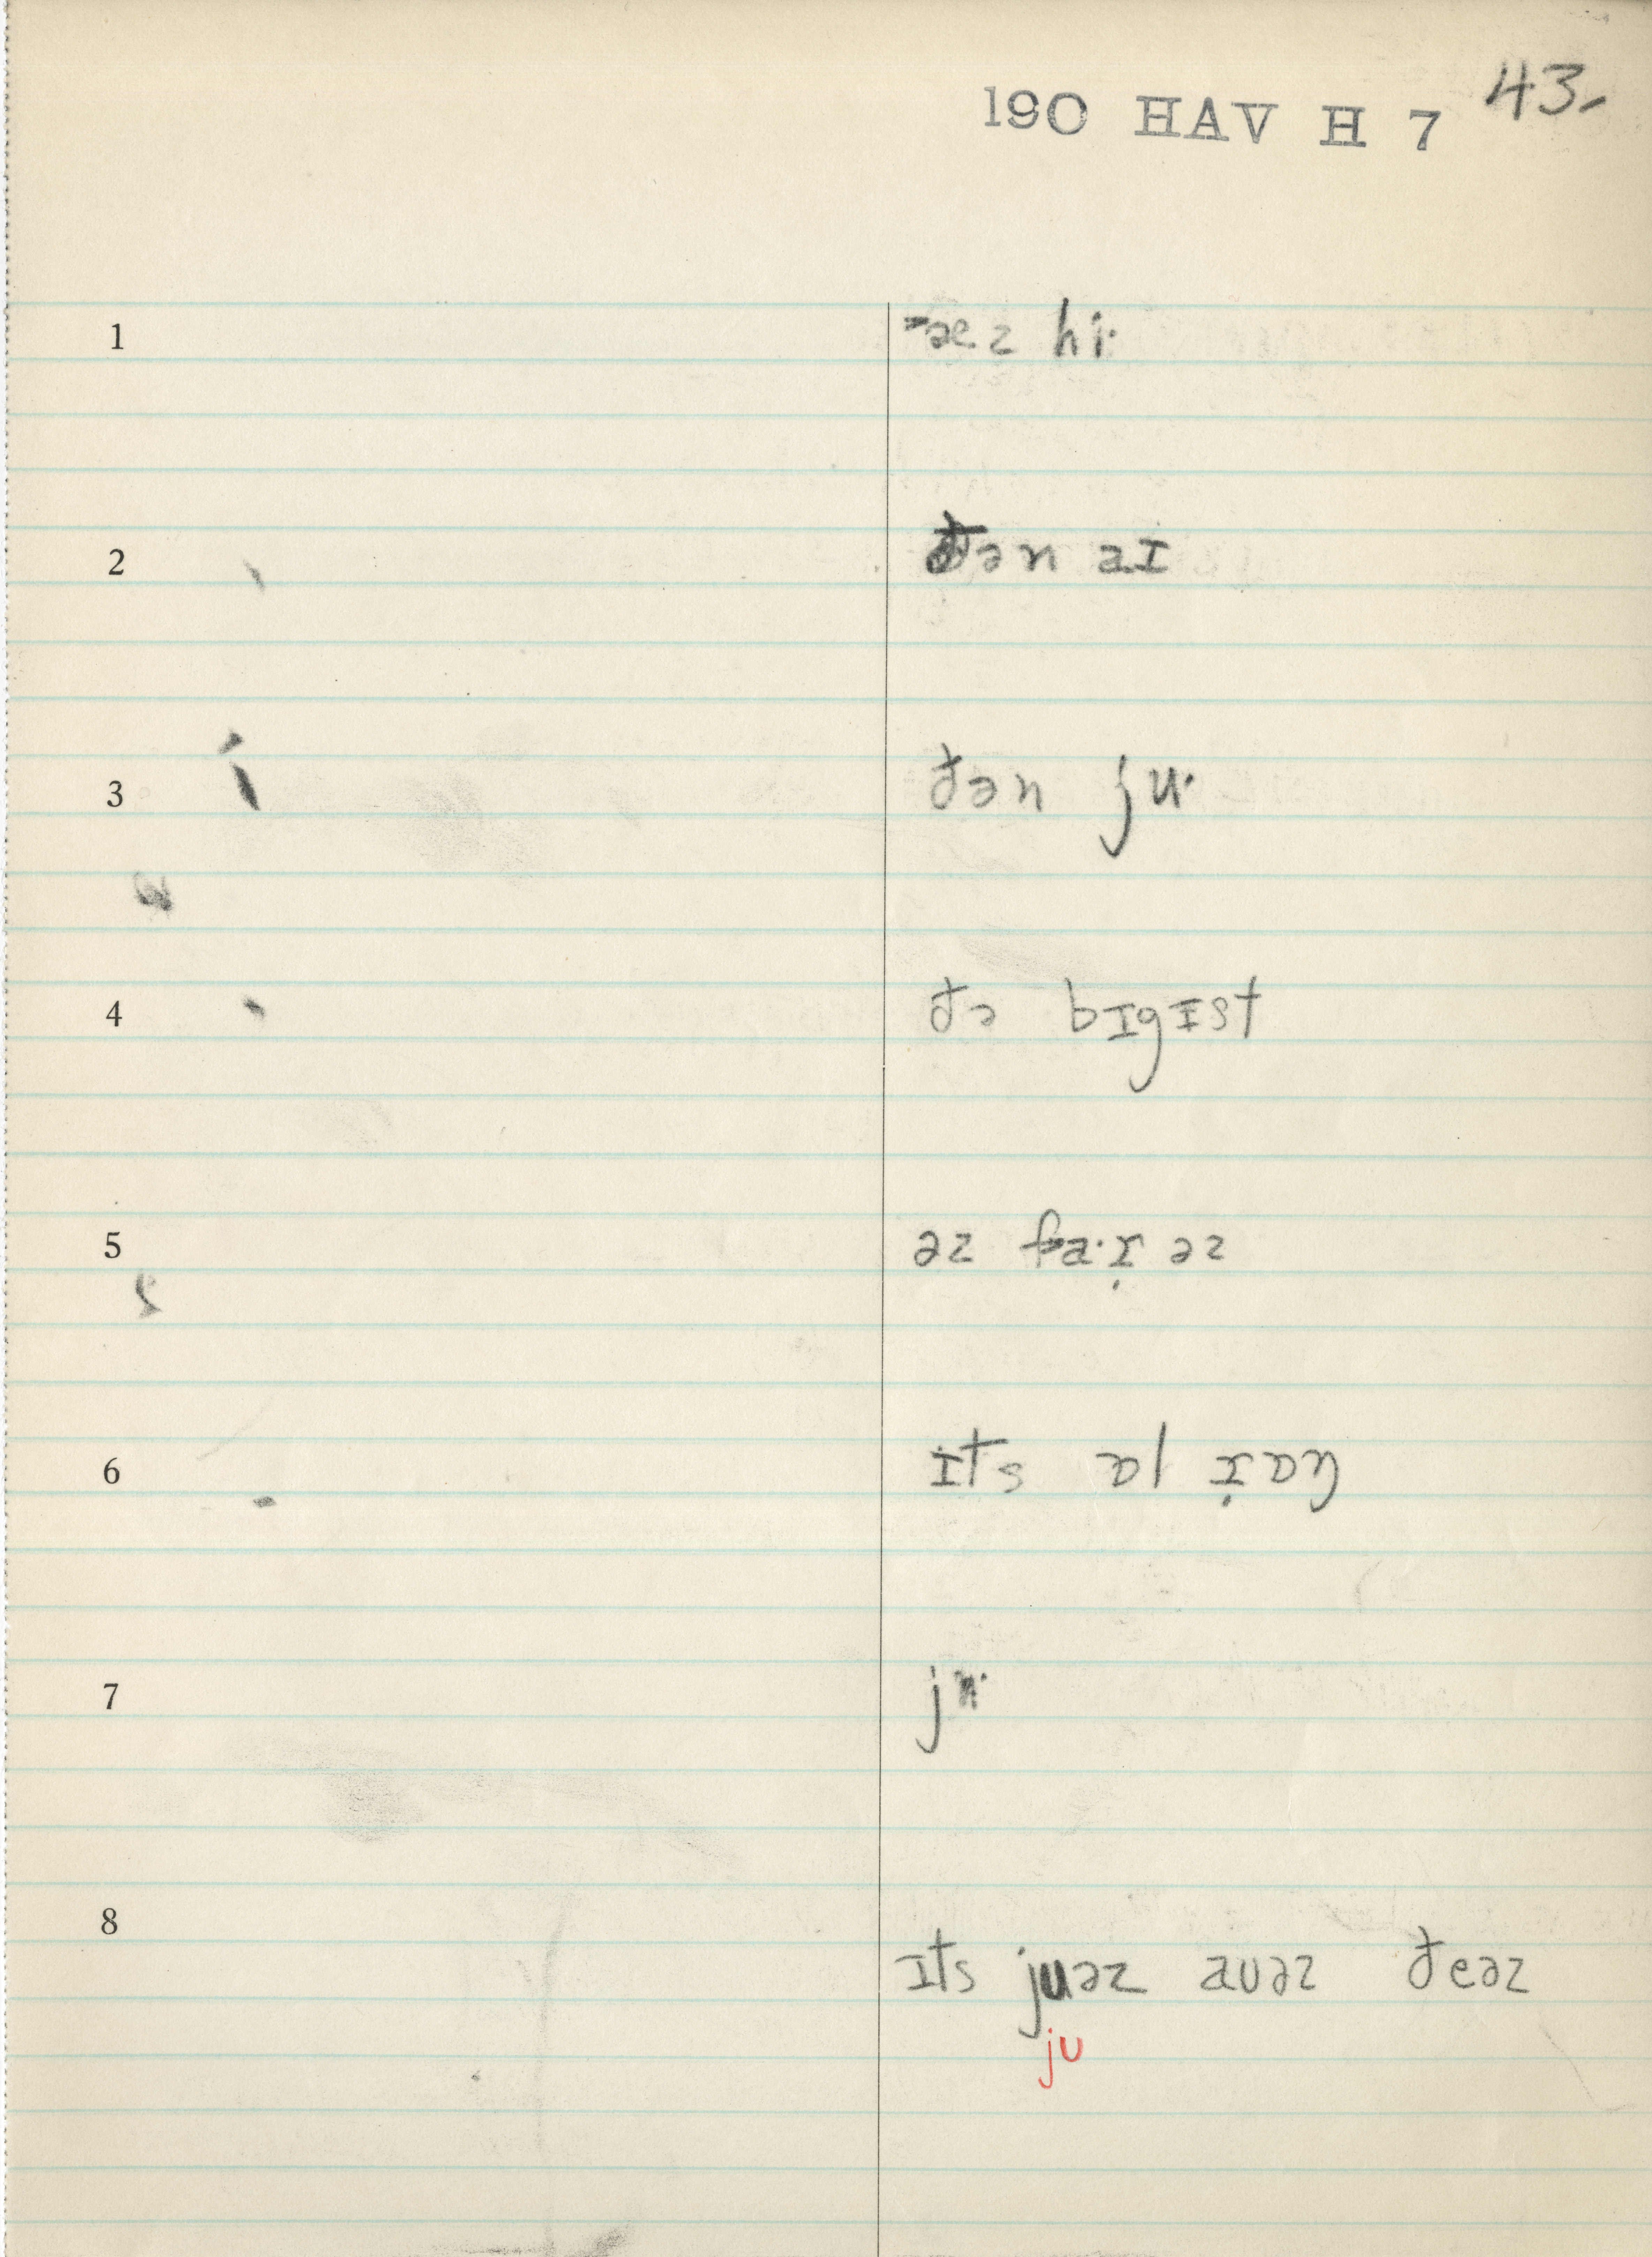 190 HAV H 7 43.
1 æz hi·
2 ðən aɪ
3 ðən ju·
4 ðə bɪgɪst
5 əz fa·ɪ̣ əz
6 ɪts ɒl ɪ̣ɒŋ
7 ju·
8
ɪts juəz auəz ðeəz
ju